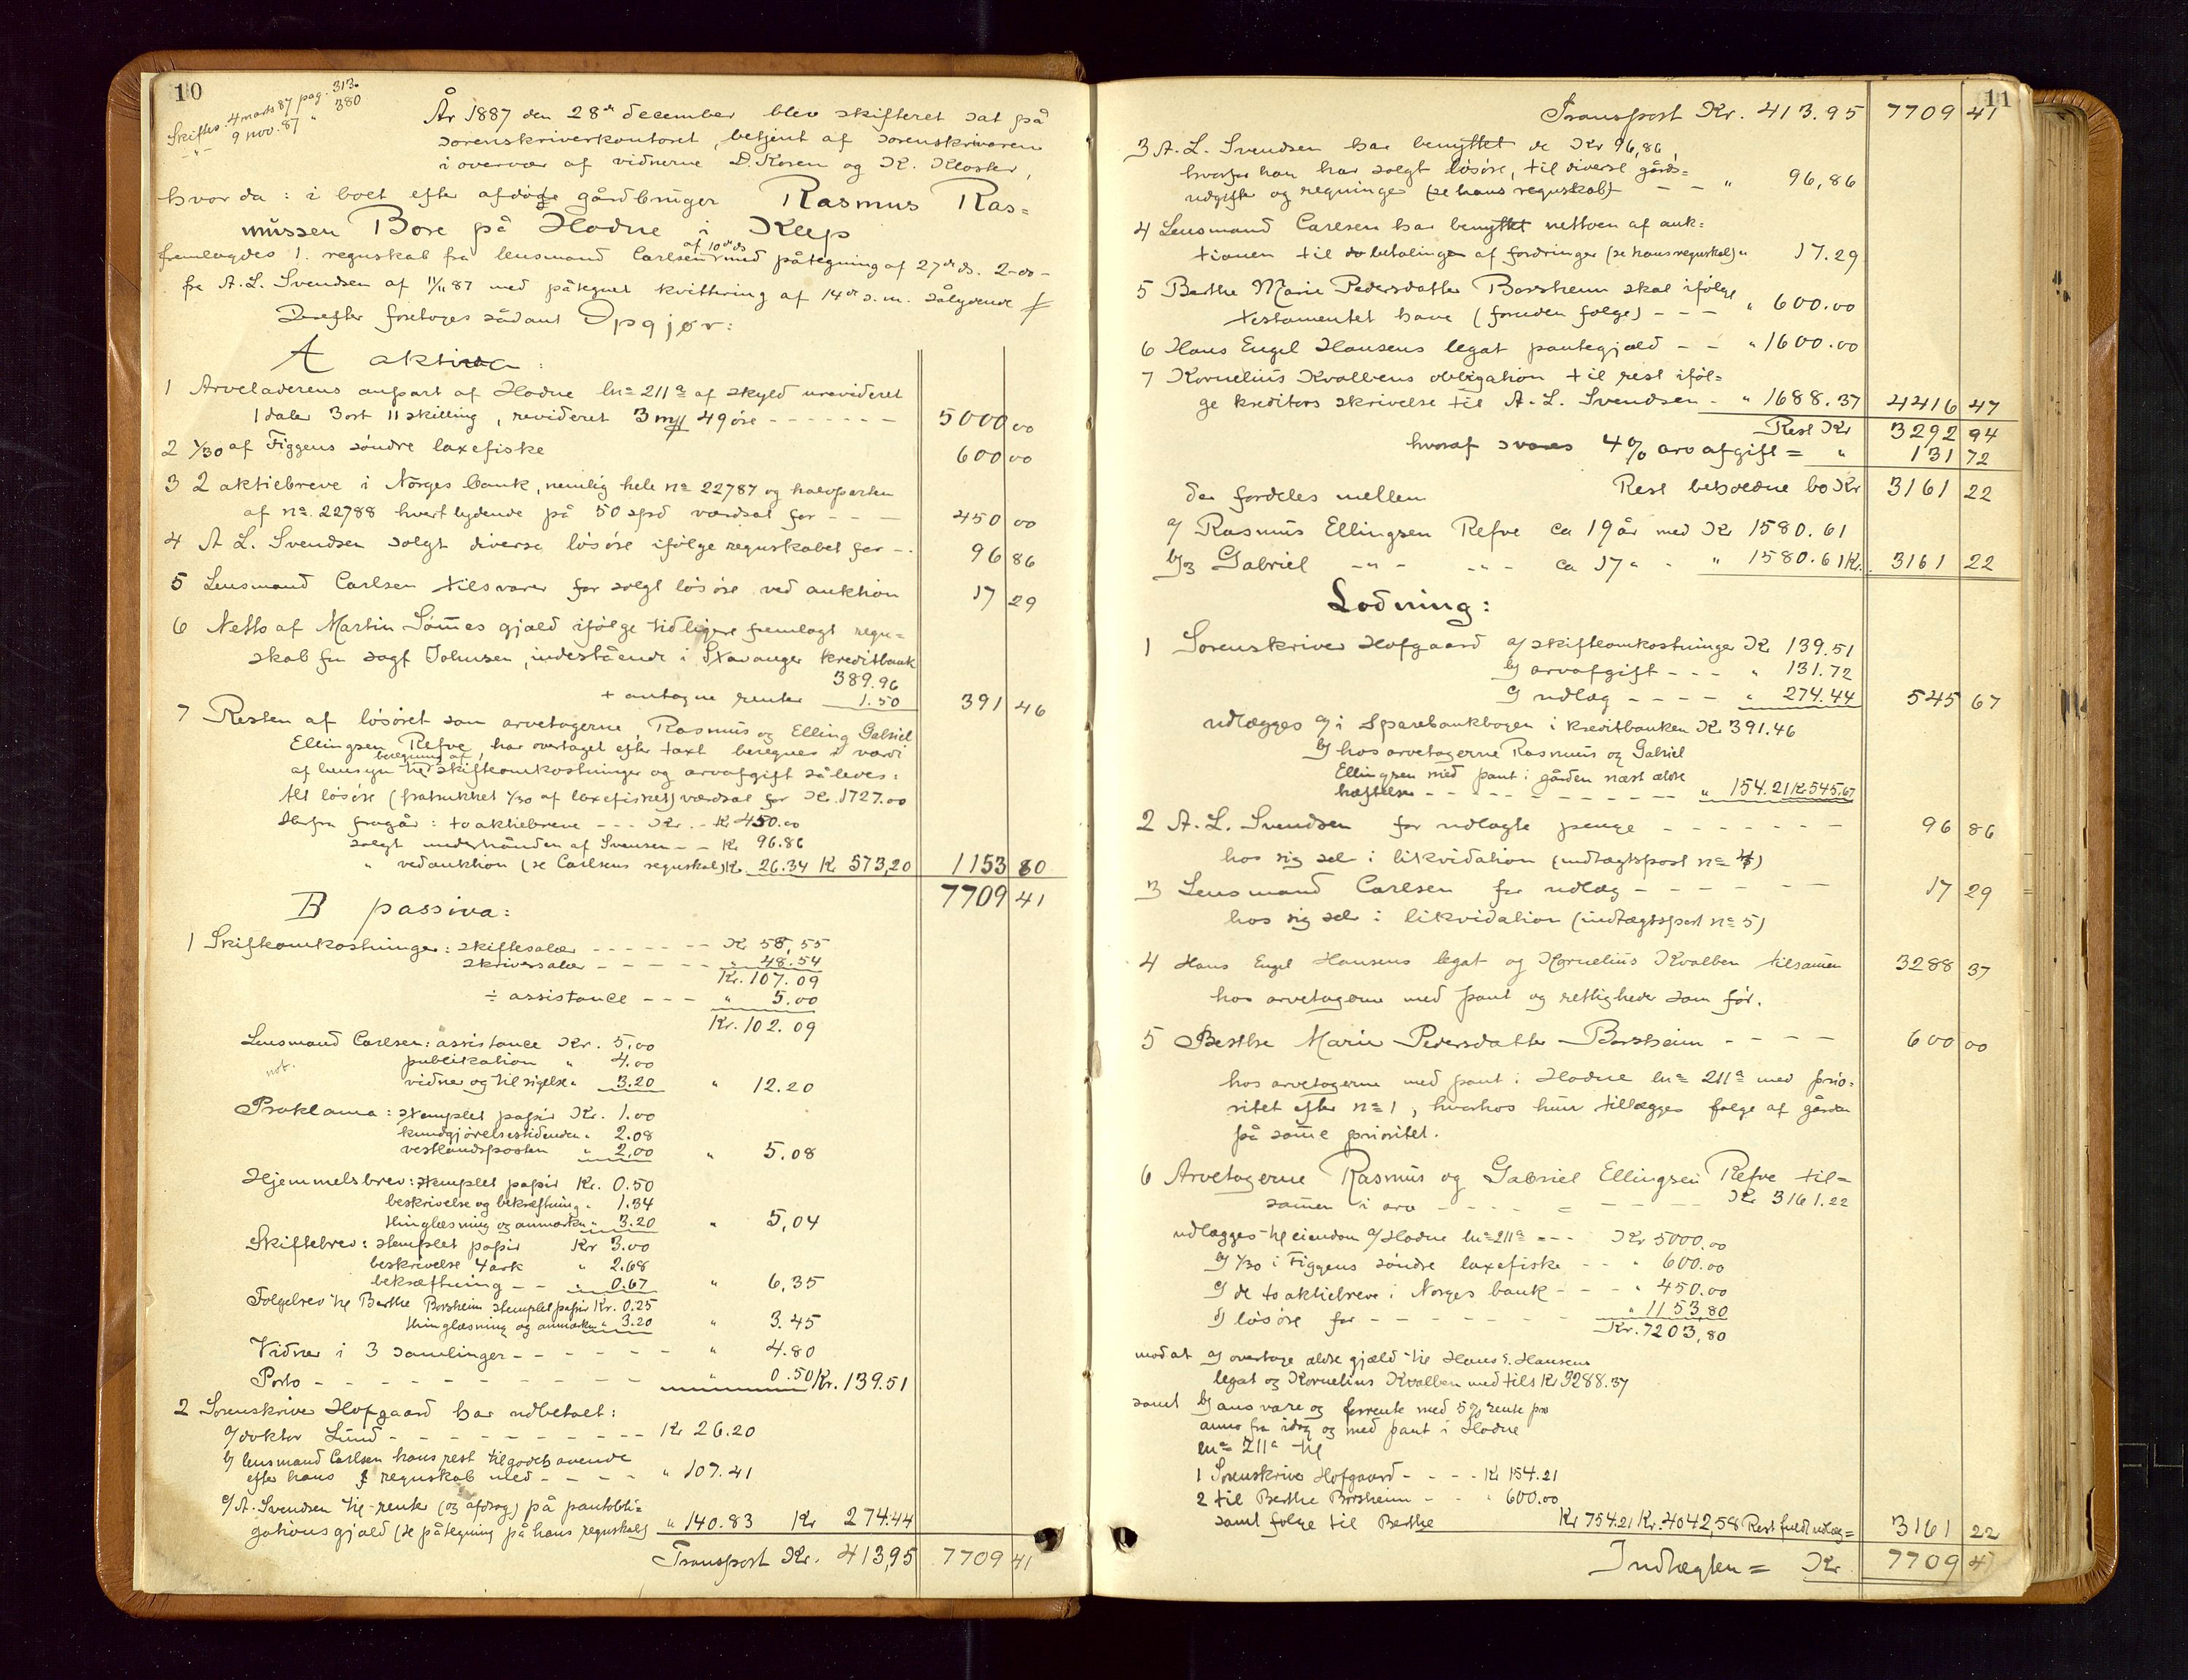 10
Skiftes. 4 marts 87 pag. 313.
-"- 9 nov. 87 " 380
År 1887 den 28de december blev skifteret sat på
sorenskriverkontoret, betjent af sorenskriveren
i overvær af vidnerne D. Rosen og K. Kloster,
hvor da: i boet efter afdøde gårdbruger Rasmus Ras=
mussen Bore på Hodne i Klep
fremlagdes 1. regnskab fra lensmand Carlsen af 10de ds med påtegning af 27de ds. 2-do-
fra A. L. Svendsen af 11/11 87 med påtegnet kvittering af 14de s.m. sålydende
Derefter foretoges sådant Opgjør:
A aktiva:
1 Arveladerens anpart af Hodne ln= 211a af skyld urevideret
1 daler 3 ort 11 skilling, revideret 3 my 49 øre - - - - - - - 5000 00
2 1/30 af Figgens søndre laxefiske 600 00
3 2 aktiebreve i Norges bank, nemlig hele n= 22787 og halvparten
af n=. 22788 hvert lydende på 50 spd værdsat for - - - 450 00
4 A L. Svendsen solgt diverse løsøre ifølge regnskabet for - . 96 86
5 Lensmand Carlsen tilsvarer for solgt løsøre ved auktion 17 29
6 Netto af Martin Sømmes gjæld ifølge tidligere fremlagt regn=
skab fra sagf Johnsen, indestående i Stavanger kreditbank
389.96
+ antagne renter 1.50 391 46
7 Resten af løsøret som arvetagerne, Rasmus og Elling Gabriel
Ellingsen Refve, har overtaget efter taxt beregnes i værdi
af hensyn til beregning af skifteomkostninger og arvafgift således:
Alt løsøre (fratrukket 1/30 af laxefisket) værdsat for Kr. 1727.00
Herfra fragår: to aktiebreve - - - Kr. - Kr 450.00
solgt underhånden af Svensen - - Kr 96.86
" ved auktion (se Carlsens regnskab) Kr. 26.34 Kr 573,20 1153 80
7709 41
B passiva:
1 Skifteomkostninger: skiftesalær - - - - - - - Kr 58,55
skriversalær - - - - - " 48.54
Kr. 107.09
÷ assistance - - - " 5.00
Kr. 102.09
Lensmand Carlsen: assistance Kr. 5,00
not. publikation " 4.00
vidner og tilsigelse " 3.20 " 12.20
Proklama: stemplet papir Kr. 1.00
kundgjørelsestidenden " 2.08
vestlandsposten " 2,00 " 5.08
Hjemmelsbrev: stemplet papir Kr. 0.50
beskrivelse og bekræftning " 1.34
thinglæsning og anmærkn " 3.20 " 5,04
Skiftebrev: stemplet papir Kr 3.00
beskrivelse 4 ark " 2.68
bekræftning - - " 0.67 " 6,35
Folgebrev til Berthe Borsheim stemplet papir Kr. 0.25
thinglæsning og anmærkn " 3.20 " 3.45
Vidner i 3 samlinger - - - - - - " 4.80
Porto - - - - - - - - - - " 0.50 Kr. 139.51
2 Sorenskriver Hofgaard har udbetalt:
a/ doktor Lund - - - - - - - - - - Kr 26.20
b/ lensmand Carlsen hans rest tilgodehavende
efter hans regnskab med - - - - " 107.41
c/ A. Svendsen til renter (og afdrag) på pantobli=
gationsgjæld (se påtegning på hans regnskab) " 140.83 Kr 274.44
Transport Kr. 413,95 7709 41
11
Transport Kr. 413.95 7709 41
3 A. L. Svendsen har benyttet de Kr 96,86,
hvorfor han har solgt løsøre, til diverse gårds=
udgifter og regninger (se hans regnskab) - - " 96,86
4 Lensmand Carlsen har benyttet nettoen af auk=
tionen til betalingen af fordringer (se hans regnskab) " 17.29
5 Berthe Marie Pedersdatter Borsheim skal ifølge
testamentet have (foruden folge) - - - " 600.00
6 Hans Engel Hansens legat pantegjæld - - " 1600.00
7 Kornelius Kvalbens obligation til rest iføl=
ge kreditors skrivelse til A. L. Svendsen - " 1688.37 4416 47
Rest Kr 3292 94
hvoraf svares 4% arvafgift = " 131 72
Rest beholdne bo Kr 3161 22
der fordeles mellem
a/ Rasmus Ellingsen Refve ca 19 år med Kr 1580.61
b/ Gabriel -"- -"- ca 17 " " 1580.61 Kr. 3161 22
Lodning:
1 Sorenskriver Hofgaard a/ skifteomkostninger Kr 139.51
b/ arvafgift - - - " 131.72
c/ udlæg - - - - " 274.44 545 67
udlægges a/ i sparebankbogen i kreditbanken Kr 391.46
b/ hos arvetagerne Rasmus og Gabriel
Ellingsen med pant i gården næst ældre
hæftelser - - - - - - - - - - " 154.21 Kr 545,67
2 A. L. Svendsen for udlagte penge - - - - - - - 96 86
hos sig selv i likvidation (indtægtspost n= 4)
3 Lensmand Carlsen for udlæg - - - - - - 17 29
hos sig selv i likvidation (indtægtspost n= 5)
4 Hans Engel Hansens legat og Kornelius Kvalben tilsamen 3288 37
hos arvetagerne med pant og rettigheder som før.
5 Berthe Marie Pedersdatter Borsheim - - - - 600 00
hos arvetagerne med pant i Hodne ln= 211a med prio=
ritet efter n= 1, hvorhos hun tillægges folge af gården
på samme prioritet.
6 Arvetagerne Rasmus og Gabriel Ellingsen Refve til=
samen i arv - - - - = - - - - Kr 3161.22
udlægges til eiendom a/ Hodne ln= 211a - - - Kr 5000.00
b/ 1/30 i Figgens søndre laxefiske - - " 600.00
c/ de to aktiebreve i Norges bank - - - " 450.00
d/ løsøre for - - - - - - - - " 1153,80
Kr. 7203,80
mod at a/ overtage ældre gjæld til Hans E. Hansens
legat og Kornelius Kvalben med tils Kr 3288.37
samt b/ ansvare og forrente med 5% rente pro
anno fra idag og med pant i Hodne
ln= 211a til
1 Sorenskriver Hofgaard - - - - Kr 154.21
2 til Berthe Borsheim - - " 600.00
samt folge til Berthe Kr 754.21 Kr. 4042,58 Rest fuldt udlæg = 3161 22
Indtægten = Kr 7709 41